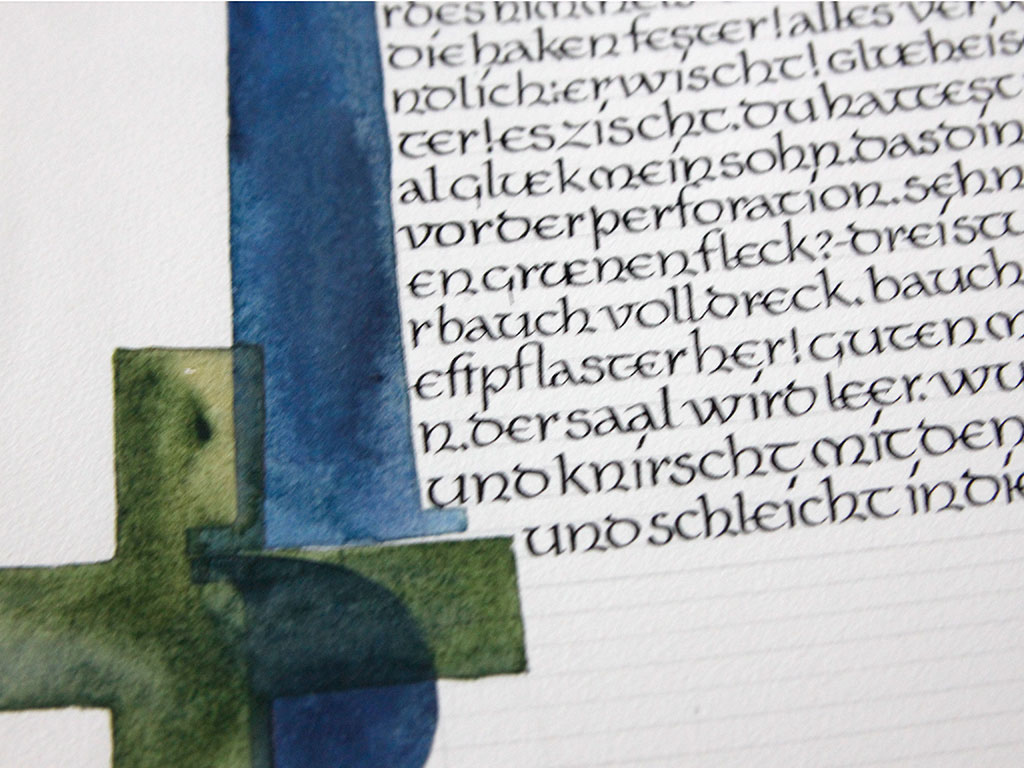 rdeshimmels
diehakenfester!allesver
ndlich:erwischt!glueheis
ter!eszischt.duhattest
algluekmeinsohn.dasdin
vorderperforation.sehn
engruenenfleck?-dreistu
rbauchvolldreck.bauch
eftpflasterher!guten
n.dersaalwirdleer.wu
undknirschtmitden
undschleichtindie